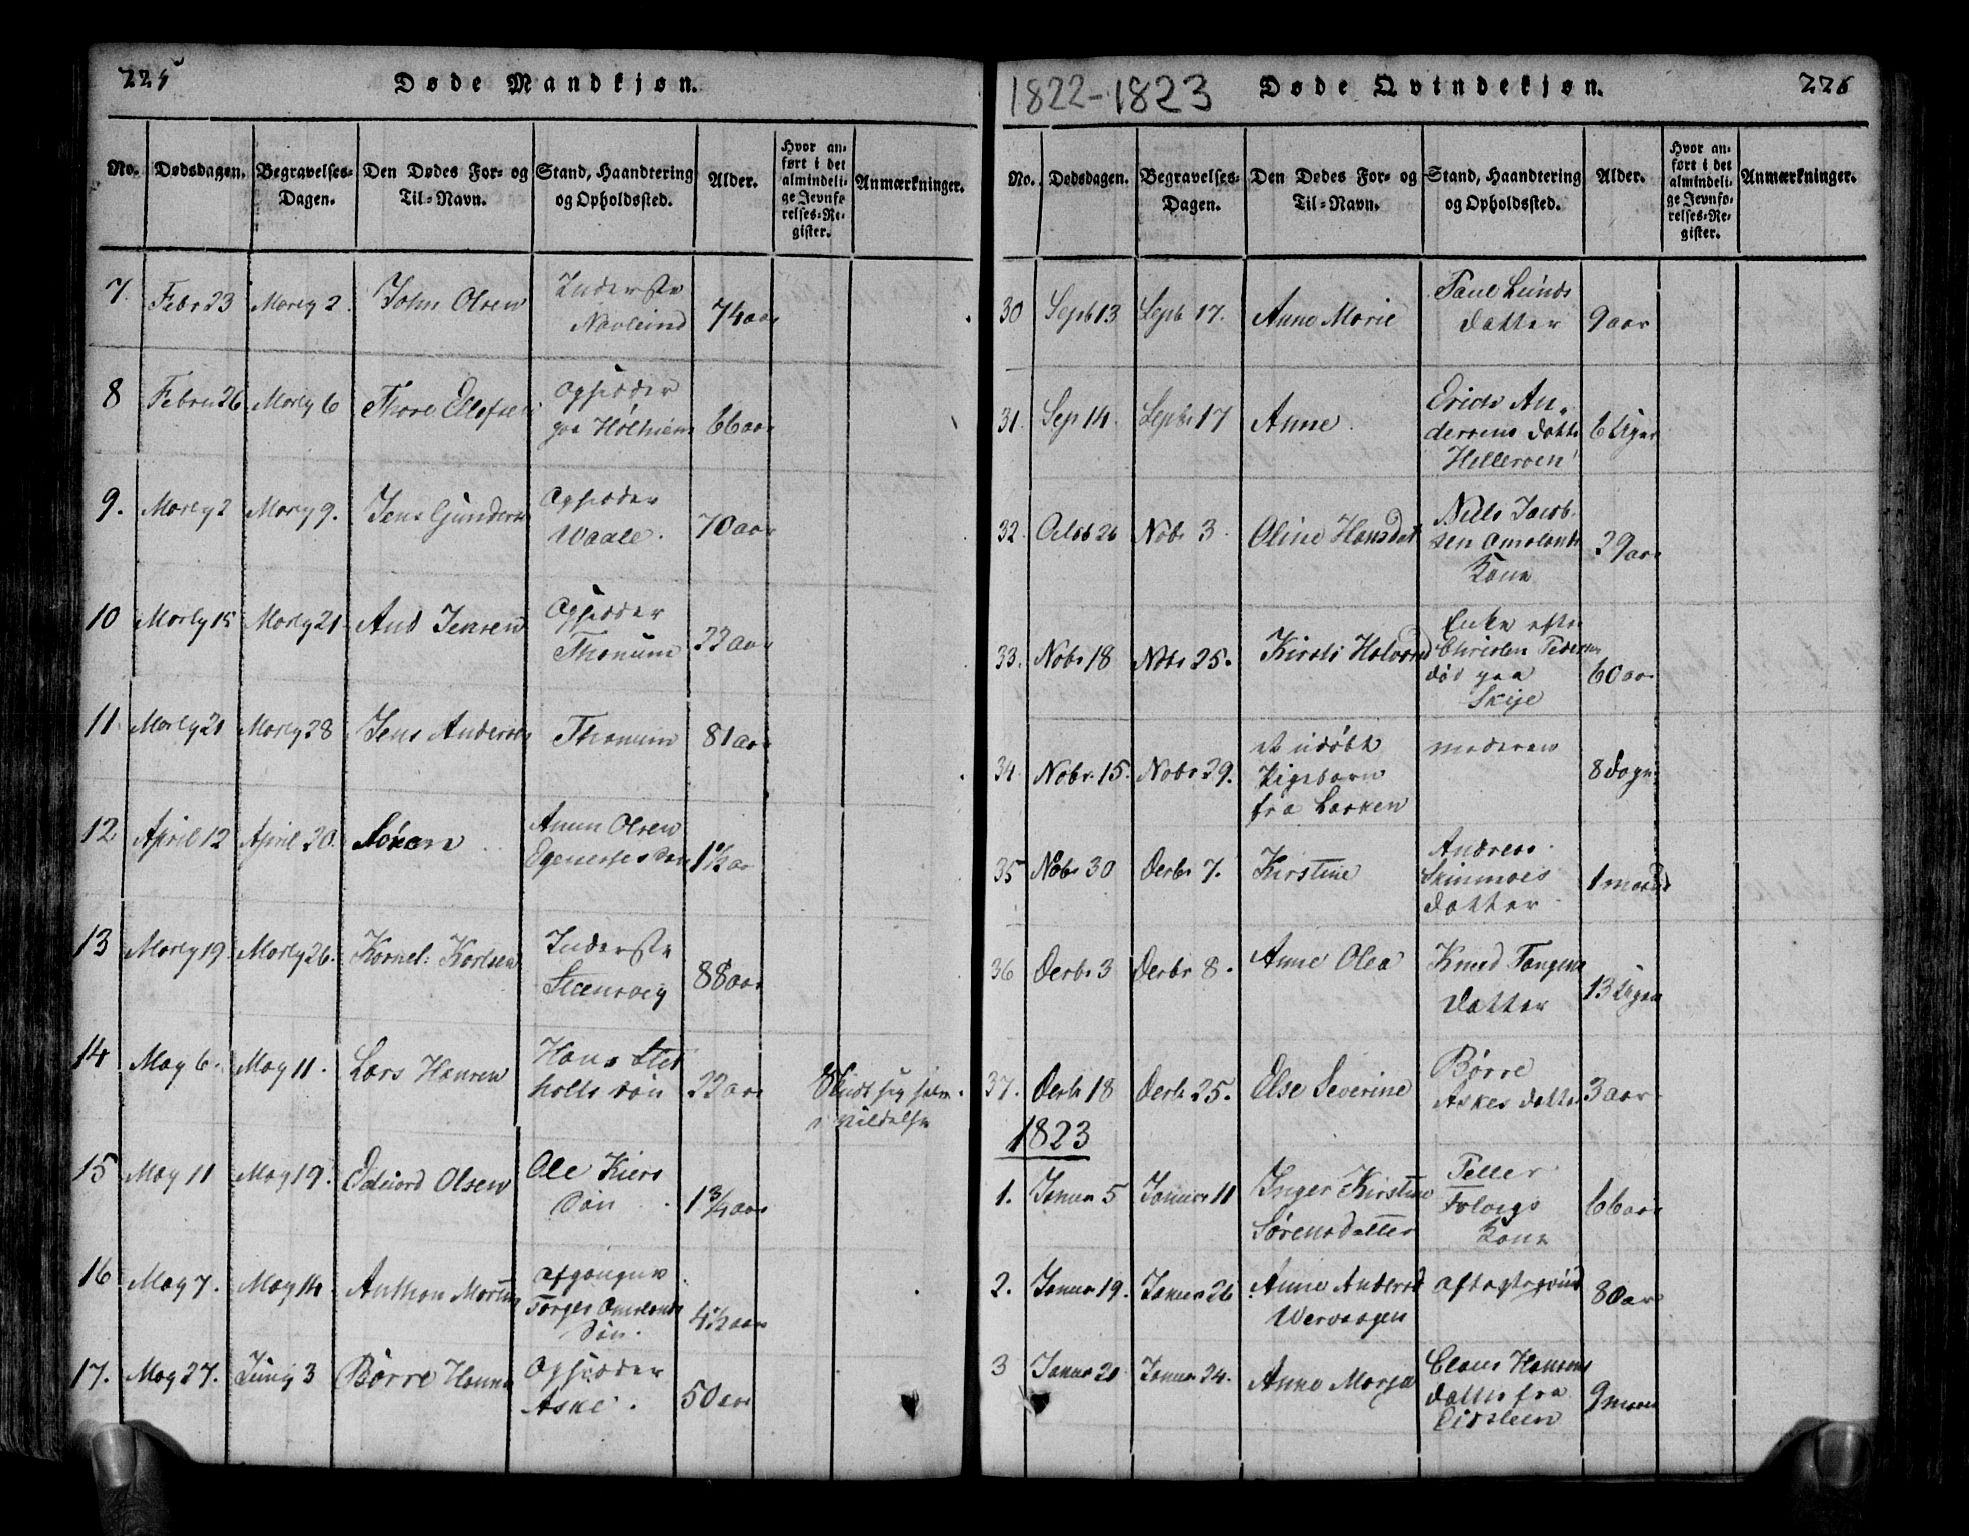 225
Døde Mandkjøn.
No. Dødsdagen. Begravelses-Dagen. Den Dødes For- og Til-Navn. Stand, Haandtering og Opholdssted. Alder. Hvor anført i det almindelige Jevnførelses-Register. Anmærkninger.
7. Febr 23 Martz 2. John Olsen Inderste 74 aar
8 Febru 26 Martz 6 Thore Ellefsen Opsidder paa Holheim 66 aar
9. Martz 2 Martz 9. Jens Gunders Opsidder Waale. 70 aar
10 Martz 15 Martz 21 And Jensen Opsidder Thonum 22 aar
11. Martz 21 Martz 28 Jens Andersen Thonum 81 aar
12 April 12 April 20. Johan Amun Olsen 1½ aar
13 Martz 19 Martz 26. Kornel: Karlsen Inderste 88 aar
14 May 6. May 11. Lars Hansen Hans holts søn 22 aar Skudt sig selv i vildelse
15 May 11 May 19. Edvard Olsen Ole Kiers Søn 1¾ aar
16 May 7. May 14 Anthon Afgangne Torger Omslands Søn. 4½ aar
17. May 27. Juny 3 Børre Hansen Opsidder Aske. 50 aar
1822-1823
Døde Qvindekjøn.
226
No. Dødsdagen. Begravelses-Dagen. Den Dødes For- og Til-Navn. Stand, Haandtering og Opholdssted. Alder. Hvor anført i det almindelige Jevnførelses-Register. Anmærkninger.
30 Septb 13 Septb 17. Anne Marie Paul Lunds datter 9 aar
31. Sep 14. Septbr 17 Anne. Erich Andersens datt 6 Uger
32. Octob 26 Nobr 3 Oline Hansdat Niels Jacobsen Omslands Kone 29 aar
33. Nobr 18 Nobr 25. Kirsti Halvors Enke efter Christen Pedersen død paa Skije 60 aar
34 Nobr. 15. Nobr 29. et udøbt Pigebarn fra moderen 8 dage
35 Nobr 30 Decbr 7. Kirstine Andreas datter 1 maaned
36 Decbr 3 Decbr 8. Anne Olea Knud Tangens datter 13 Uger
37. Decbr 18 Decbr 25. Else Severine Børre Askes datter 3 aar
1823
1. Januar 5 Januar 11 Inger Kirstine Sørensdatter Peller Kone 66 aar
2. Januar 19. Januar 26 Anne Andersd aftægtsqvind 80 aar
3 Januar 20 Januar 24. Anne Claus Hansens datter fra 9 maan